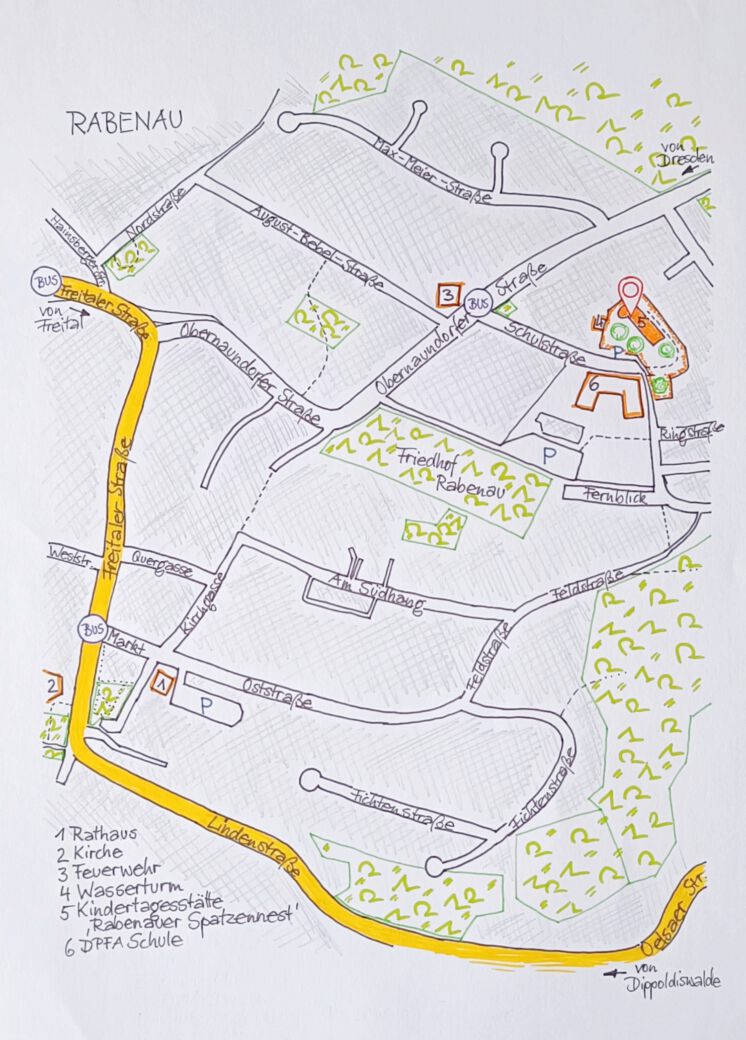 RABENAU
von
Dresden
Max-Meier-Straße
Nordstraße
August-Bebel-Straße
BUS
Freitaler Straße
von
Freital
Obernaundorfer Straße
3
BUS
Obernaundorfer Straße
Schulstraße
4
5
P
6
Ringstraße
P
Fernblick
Friedhof
Rabenau
Freitaler Straße
Weststr.
Quergasse
Kirchgasse
Am Südhang
Feldstraße
Feldstraße
BUS
Markt
2
1
P
Oststraße
Fichtenstraße
Fichtenstraße
Lindenstraße
Oelsaer Str.
von
Dippoldiswalde
1 Rathaus
2 Kirche
3 Feuerwehr
4 Wasserturm
5 Kindertagesstätte
'Rabenauer Spatzennest'
6 DPFA Schule